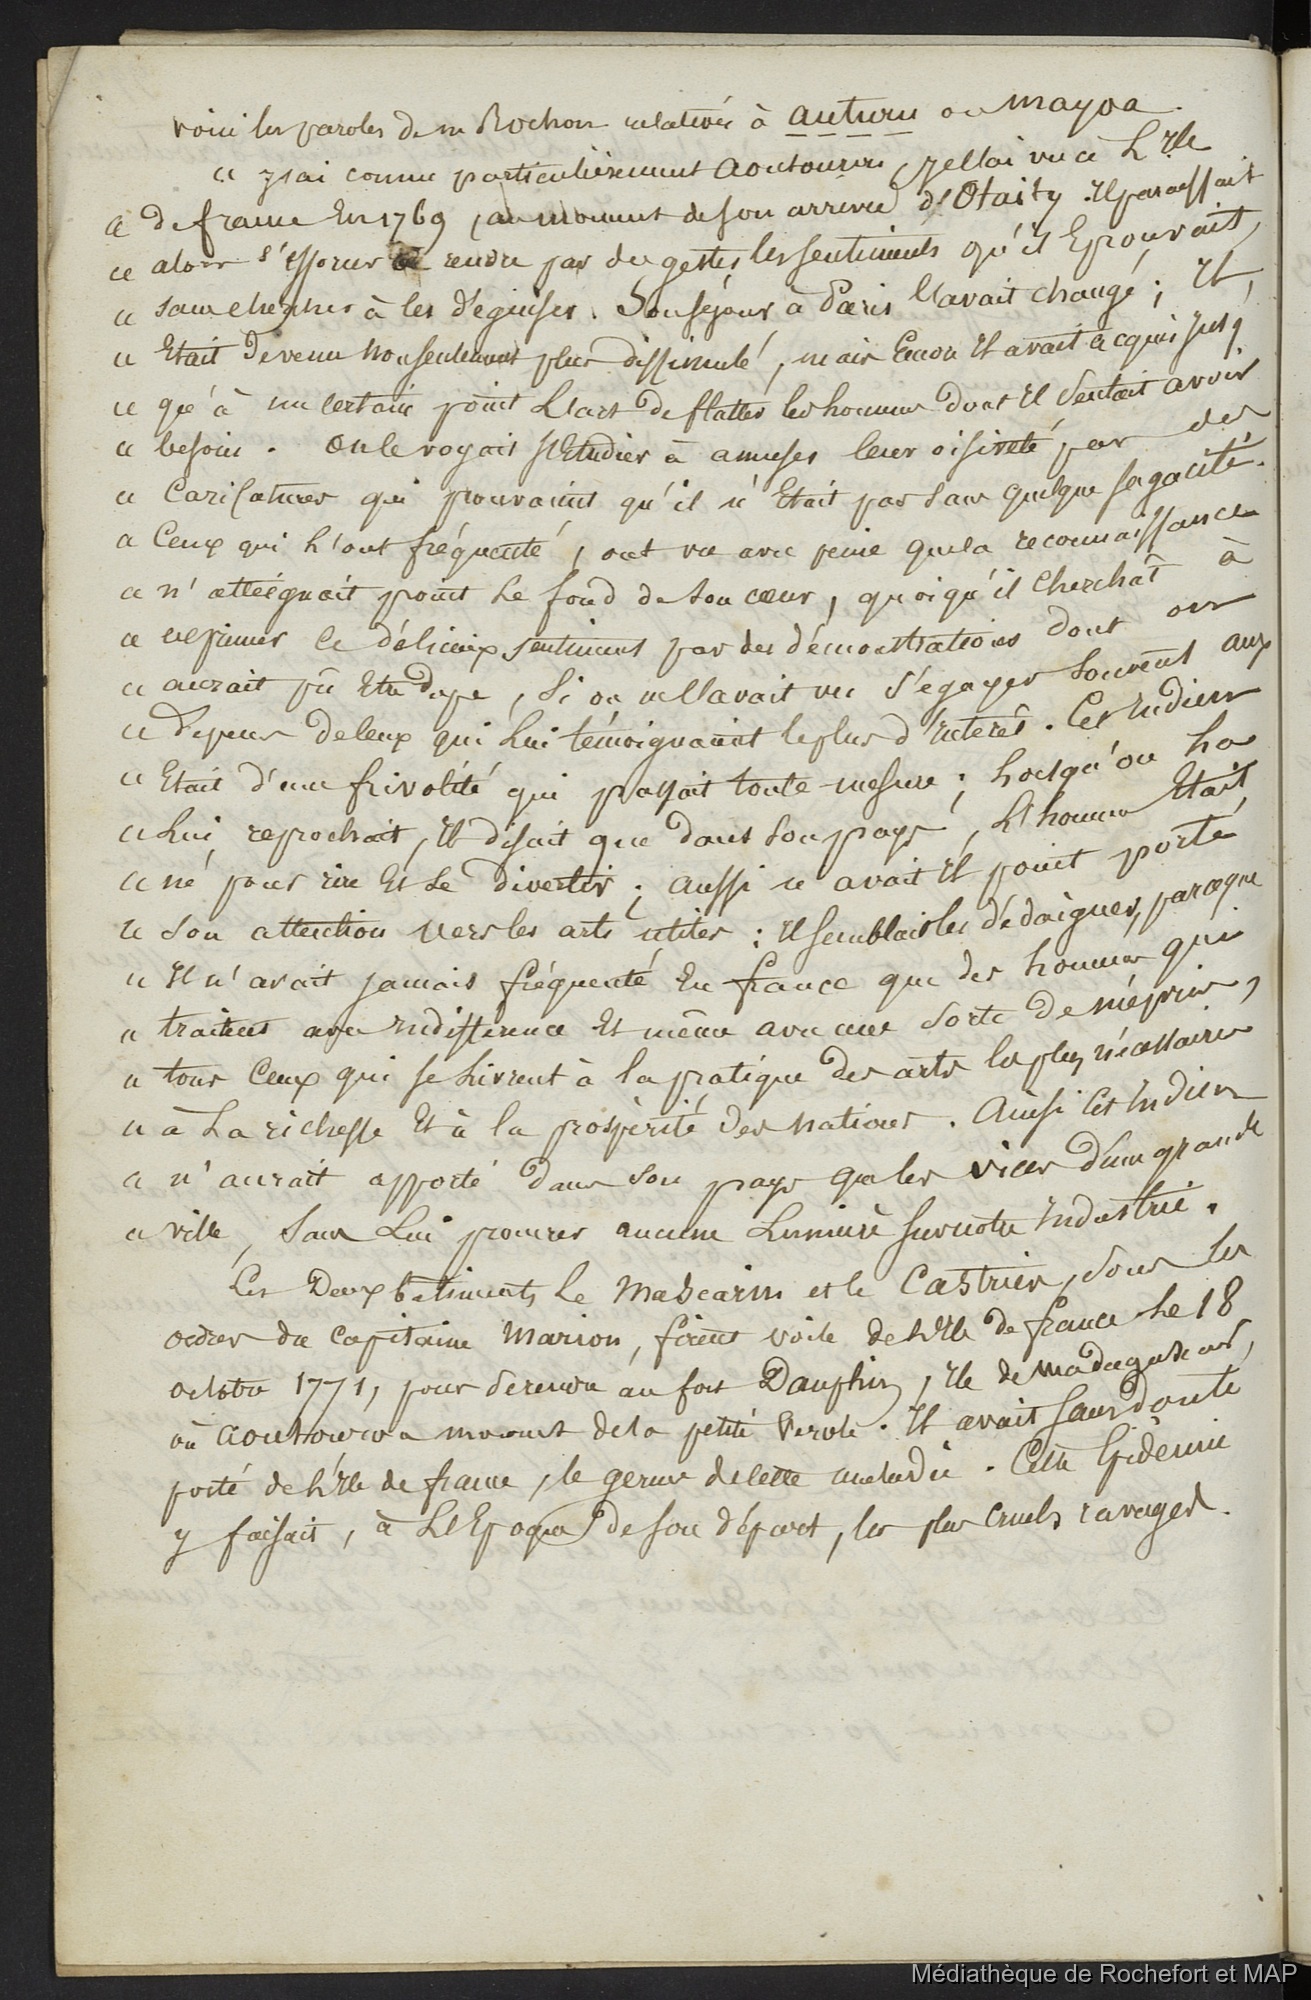 voici les paroles de m Rochon relatives à auturu ou mayoa.
« J'ai connu particulièrement aoutourou, Je l'ai vu à L'Ile
« de france En 1769, au moment de son arrivée d'Otaity. Il paraissait
« alors s'efforcer à rendre par des gestes les sentiments qu'il Eprouvait,
« sans chercher à les déguiser. Son séjour à Paris l'avait changé; Il,
« Etait devenu non seulement plus dissimulé, mais Encor Il avait acquis jusq
« qu'à un certain point L'art de flatter les hommes dont Il Sentait avoir
« besoin. On le voyait s'Etudier à amuser leur oisiveté par des
« Caricatures qui prouvaient qu'il n'Etait pas sans quelque sagacité.
« Ceux qui l'ont fréquenté, ont vu avec peine que la reconnaissance
« n'atteignait point Le fond de son cœur, quoiqu'il Cherchât à
« exprimer ce délicieux sentiment par des démonstrations dont on
« aurait pû Etre dupe, Si on ne l'avait vu s'égayer souvent aux
« dépens de Ceux qui Lui témoignaient le plus d'Interêt. Cet Indien
« Etait d'une frivolité qui passait toute mesure; Lorsqu'on la
« Lui reprochait, Il disait que dans son pays, L'homme Etait
« né pour rire Et se divertir; aussi n'avait Il point porté
« Son attention vers les arts utiles: Il semblait les dédaigner, parceque
« Il n'avait jamais fréquenté En france que des hommes qui
« traitent avec Indifference Et même avec une sorte de mépris,
« tous Ceux qui se Livrent à la pratique des arts les plus nécessaires
« à La richesse Et à la prospérité des nations. Ainsi Cet Indien
« n'aurait apporté dans son pays que les vices d'une grande
« ville, Sans Lui procurer aucune Lumière sur notre Industrie.
Les Deux bâtiments, Le Mascarin et le Castries, sous les
ordres du Capitaine Marion, firent voile de L'Ile de france Le 18
octobre 1771, pour se rendre au fort Dauphin, Ile de Madagascar,
où aoutourou mourut de la petite Verole. Il avait sans doute
porté de L'Ile de france, le germe de cette maladie. Cette Epidemie
y faisait, à L'Epoque de son départ, les plus cruels ravages.
Médiathèque de Rochefort et MAP